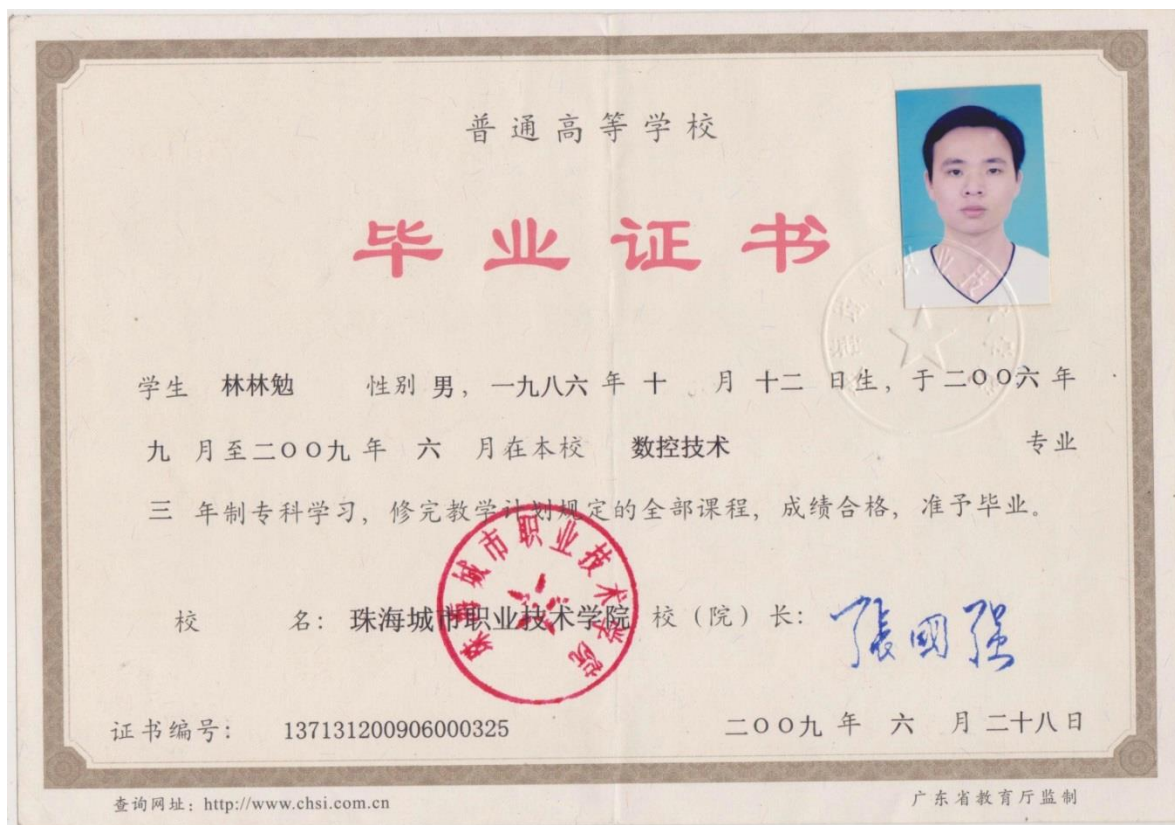 普通高等学校
毕业证书
学生 林林勉 性别 男，一九八六 年 十 月 十二 日生，于 二〇〇六 年
九 月至 二〇〇九 年 六 月在本校 数控技术 专业
三 年制专科学习，修完教学计划规定的全部课程，成绩合格，准予毕业。
珠海城市职业技术学院
校 名：珠海城市职业技术学院 校（院）长：張國强
证书编号： 137131200906000325 二〇〇九 年 六 月 二十八 日
查询网址：http://www.chsi.com.cn 广东省教育厅监制